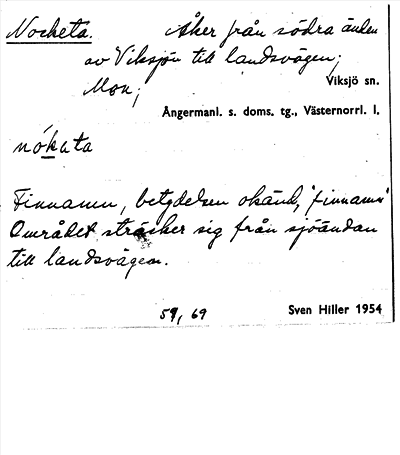 Nocketa. Åker från södra änden
av Viksjön till landsvägen;
Mon;
Viksjö sn.
Ångermanl. s. doms. tg., Västernorrl. l.
nókata
Finnamn, betydelsen okänd, "finnamn"
Området sträcker sig från sjöändan
till landsvägen.
59, 69
Sven Hiller 1954